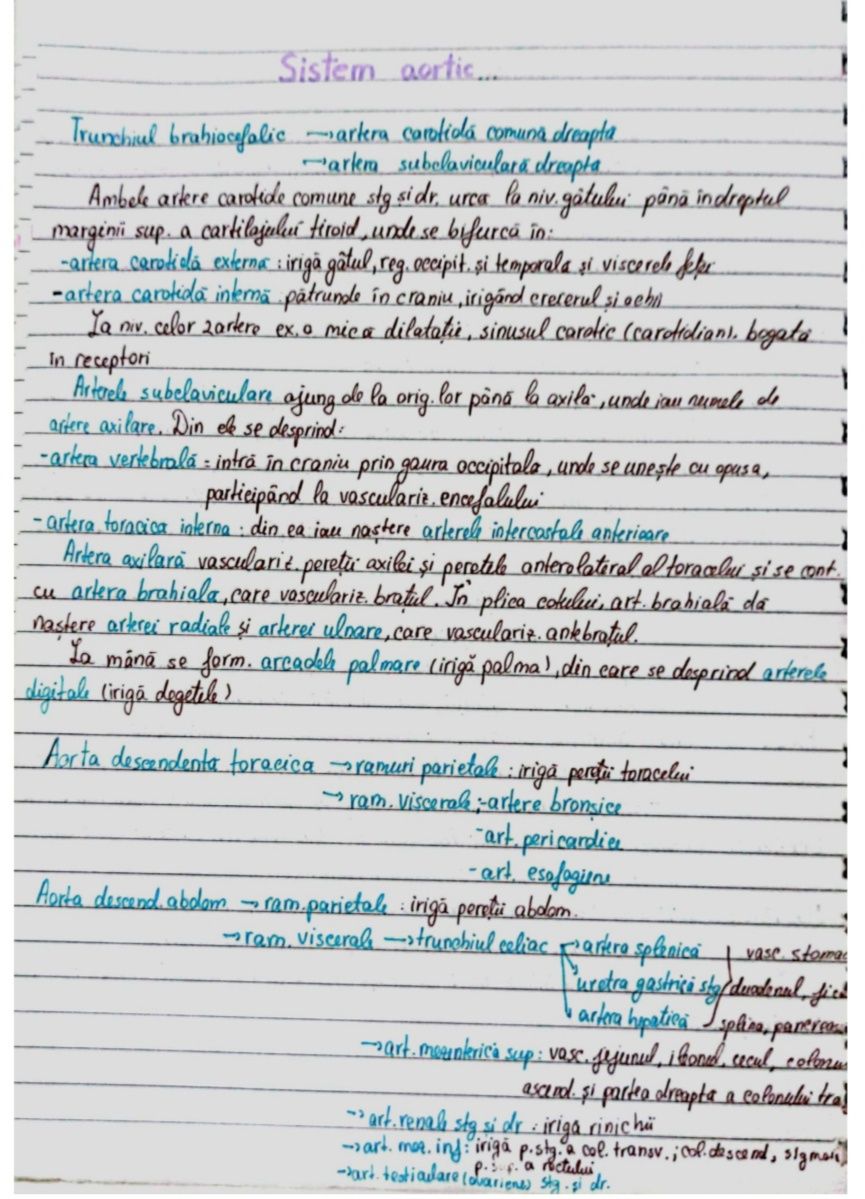 Sistem aortic...
Trunchiul brahiocefalic → artera carotidă comună dreapta
→ artera subclaviculară dreapta
Ambele artere carotide comune stg și dr. urca la niv. gâtului până în dreptul
marginii sup. a cartilajului tiroid, unde se bifurcă în:
-artera carotidă externă : irigă gâtul, reg. occipit. și temporala și viscerele feței
-artera carotidă internă pătrunde în craniu, irigând creierul și ochii
La niv. celor 2 artere ex. o mică dilatație, sinusul carotic (carotidian). bogată
în receptori
Arterele subclaviculare ajung de la orig. lor până la axila, unde iau numele de
artere axilare. Din ele se desprind:
-artera vertebrală : intră în craniu prin gaura occipitala, unde se unește cu opusa,
participând la vasculariz. encefalului
-artera toracica interna : din ea iau naștere arterele intercostale anterioare
Artera axilară vasculariz. pereții axilei și peretele anterolateral al toracelui și se cont.
cu artera brahiala, care vasculariz. brațul. În plica cotului, art. brahială dă
naștere arterei radiale și arterei ulnare, care vasculariz. antebrațul.
La mână se form. arcadele palmare (irigă palma), din care se desprind arterele
digitale (irigă degetele)
Aorta descendenta toracica → ramuri parietale : irigă pereții toracelui
→ ram. viscerale :-artere bronșice
-art. pericardice
-art. esofagiene
Aorta descend. abdom → ram. parietale : irigă pereții abdom.
→ ram. viscerale → trunchiul celiac → artera splenică vasc. stomac
uretra gastrică stg duodenul, fica
artera hepatică splina, pancreas
→ art. mezenterică sup : vasc. jejunul, ileonul, cecul, colonu
ascend. și partea dreapta a colonului tra
→ art. renale stg și dr : irigă rinichii
→ art. mez. inf : irigă p. stg. a col. transv. ; col. descend, sigmoi
p. sup. a rectului
→ art. testiculare (ovariene) stg. și dr.